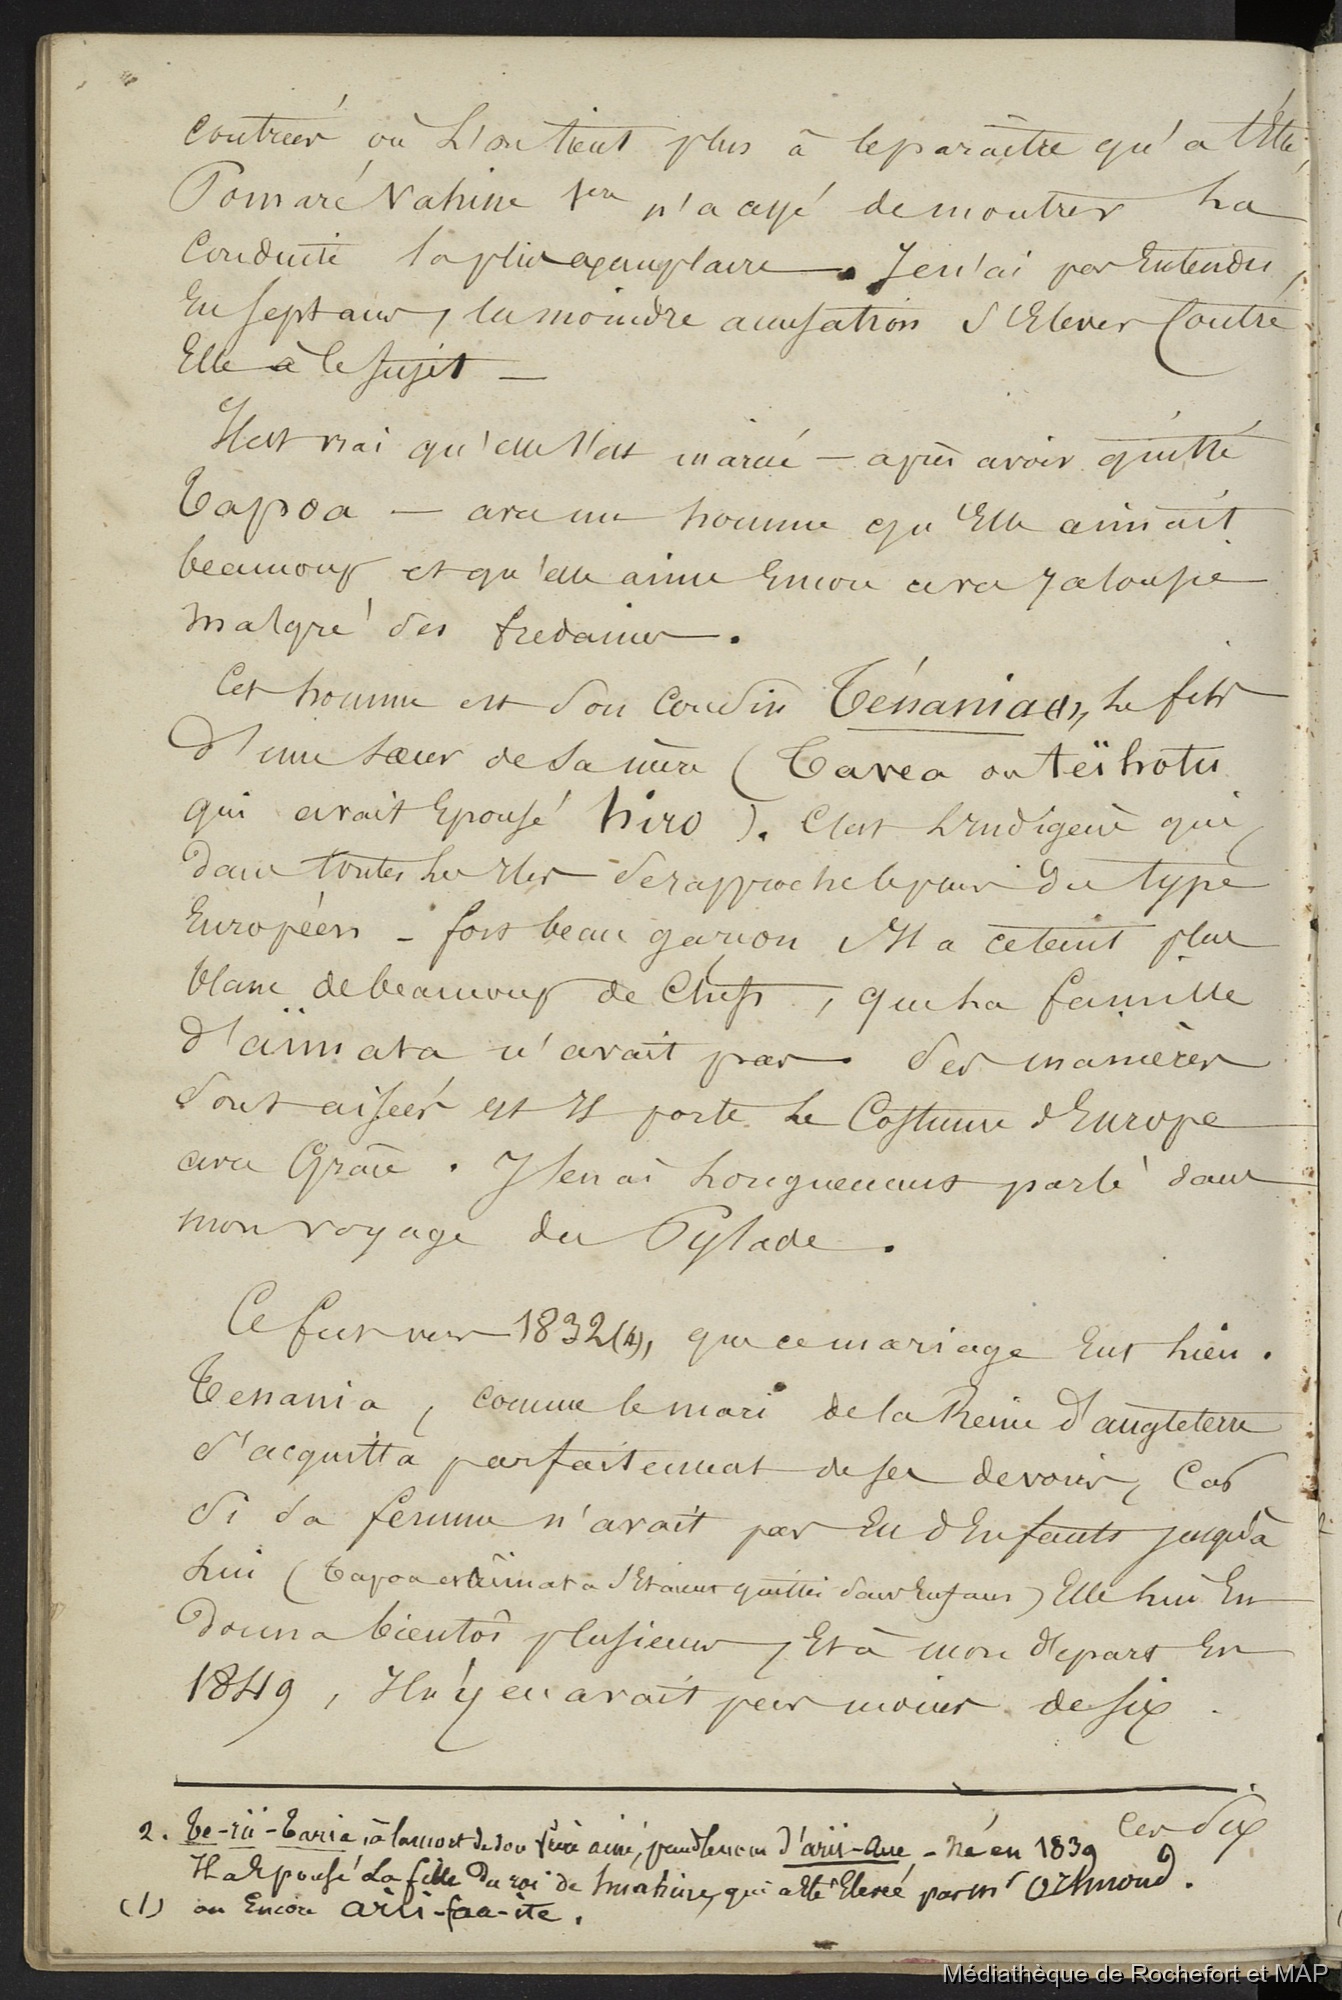 contrées où l'on tient plus à le paraître qu'a l'être,
Pomaré Vahine 1ere n'a cessé de montrer la
conduite la plus exemplaire. Je n'ai pas entendu,
en sept ans, la moindre accusation s'élever contre
Elle à ce sujet —
Il est vrai qu'elle s'est mariée — après avoir quitté
Tapoa — avec un homme qu'Elle aimait
beaucoup et qu'elle aime encore avec jalousie
malgré ses fredaines.
Cet homme est son cousin Ténania (1), le fils
d'une sœur de sa mère (Tavea ou teïhotu
qui avait Epousé hiro). C'est l'indigène qui,
dans toutes les Iles se rapproche le plus du type
Européen - fort beau garçon, Il a ce teint plus
blanc de beaucoup de Chefs, que la famille
d'aïmata n'avait pas. ses manières
sont aisées et Il porte le Costume d'Europe
avec Grâce. J'en ai longuement parlé dans
mon voyage du Pylade.
Ce fut vers 1832, que ce mariage eut lieu.
Tenania, comme le mari de la Reine d'angleterre
s'acquitta parfaitement de ses devoirs, Car
si sa femme n'avait pas Eu d'Enfants jusqu'à
lui (Tapoa et aïmata s'Etaient quittés sans Enfans) Elle lui En
donna bientôt plusieurs, Et à mon départ En
1849, Il n'y en avait pas moins de six.
Ces six
2. Te-rii-Taria, à la mort de son frère ainé, prend le nom d'arii-aue - Né en 1839
Il a Epousé La fille du roi de huahine, qui a Eté Elevée par mr Ormond.
(1) ou Encore arii-faa-ite.
Médiathèque de Rochefort et MAP